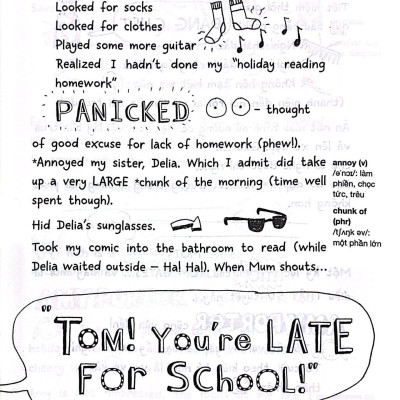 Looked for socks
Looked for clothes
Played some more guitar
Realized I hadn't done my "holiday reading
homework"
PANICKED - thought
of good excuse for lack of homework (phew!).
*Annoyed my sister, Delia. Which I admit did take
up a very LARGE *chunk of the morning (time well
spent though).
Hid Delia's sunglasses.
Took my comic into the bathroom to read (while
Delia waited outside – Ha! Ha!). When Mum shouts...
annoy (v)
/əˈnɔɪ/: làm
phiền, chọc
tức, trêu
chunk of
(phr)
/tʃʌŋk əv/:
một phần lớn
"TOM! You're LATE
FOR SCHOOL!"